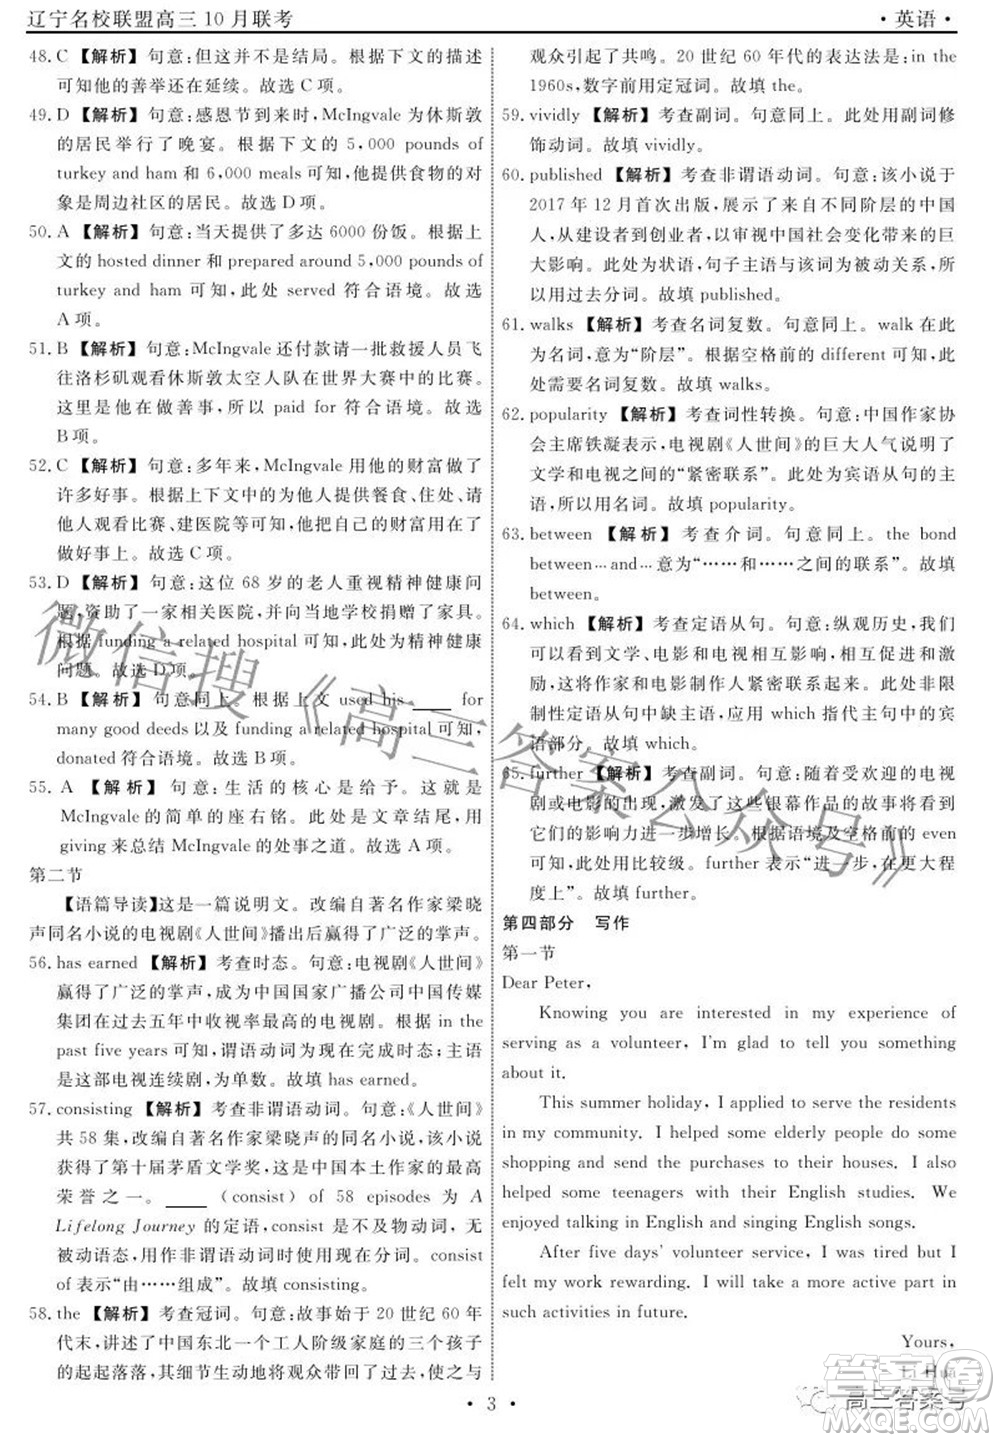 辽宁名校联盟高三10月联考
·英语·
48. C 【解析】句意:但这并不是结局。根据下文的描述
可知他的善举还在延续。故选C项。
49. D 【解析】句意:感恩节到来时,McIngvale为休斯敦
的居民举行了晚宴。根据下文的5,000 pounds of
turkey and ham和6,000 meals可知,此处提供食物的对
象是周边社区的居民。故选D项。
50. A 【解析】句意:当天提供了多达6000份饭。根据上
文的hosted dinner和prepared around 5,000 pounds of
turkey and ham可知,此处served符合语境。故选
A项。
51. B 【解析】句意:McIngvale还付款请一批救援人员飞
往洛杉矶观看休斯敦太空人队在世界大赛中的比赛。
这里是他在做善事,所以paid for符合语境。故选
B项。
52. C 【解析】句意:多年来,McIngvale用他的财富做了
许多好事。根据上下文中的提供餐食、住处、请
他人观看比赛、建医院等可知,他利用自己的财富用在了
做好事上。故选C项。
53. D 【解析】句意:这位68岁的老人重视精神健康问
题,资助了一家相关医院,并向当地学校捐赠了家具。
根据funding a related hospital可知,此处为精神健康
问题。故选D项。
54. B 【解析】句意同上。根据上文used his ____ for
many good deeds以及funding a related hospital可知,
donated符合语境。故选B项。
55. A 【解析】句意:生活的核心是给予。这是
McIngvale的简单的座右铭。此处是文章结尾,用
giving来总结McIngvale的处事之道。故选A项。
第二节
【语篇导读】这是一篇说明文。改编自著名作家梁晓
声同名小说的电视剧《人世间》播出后赢得了广泛的掌声。
56. has earned 【解析】考查时态。句意:电视剧《人世间》
赢得了广泛的掌声,成为中国国家广播公司中国传媒
集团在过去五年中收视率最高的电视剧。根据in the
past five years可知,谓语动词为现在完成时;主语
是这部电视连续剧,为单数。故填has earned。
57. consisting 【解析】考查非谓语动词。句意:《人世间》
共58集,改编自著名作家梁晓声的同名小说,该小说
获得了第十届茅盾文学奖,这是中国本土作家的最高
荣誉之一。____ (consist) of 58 episodes为A
Lifelong Journey的定语,consist是不及物动词,无
被动语态,用作非谓语动词时用现在分词。consist
of表示“由……组成”。故填consisting。
58. the 【解析】考查冠词。句意:故事始于20世纪60年
代末,讲述了中国东北一个工人阶级家庭的三个孩子
的起起落落,其细节生动地将观众带回了过去,使之与
观众引起了共鸣。20世纪60年代的表达法是:in the
1960s,数字前用定冠词。故填the。
59. vividly 【解析】考查副词。句意同上。此处用副词修
饰动词。故填vividly。
60. published 【解析】考查非谓语动词。句意:该小说于
2017年12月首次出版,展示了来自不同阶层的中国
人,从建设者到创业者,以审视中国社会变化带来的巨
大影响。此处为状语,句子主语与该词为被动关系,所
以用过去分词。故填published。
61. walks 【解析】考查名词复数。句意同上。walk在此
为名词,意为“阶层”。根据空格前的different可知,此
处需要名词复数。故填walks。
62. popularity 【解析】考查词性转换。句意:中国作家协
会主席铁凝表示,电视剧《人世间》的巨大人气说明了
文学和电视之间的“紧密联系”。此处为宾语从句的主
语,所以用名词。故填popularity。
63. between 【解析】考查介词。句意同上。the bond
between…and…意为“……和……之间的联系”。故填
between。
64. which 【解析】考查定语从句。句意:纵观历史,我们
可以看到文学、电影和电视之间的相互促进和合作,
这将作家和电影制作人紧密联系起来。此处为非限
制性定语从句中缺主语,应用which指代主句中的宾
语部分。故填which。
65. further 【解析】考查副词。句意:随着受欢迎的电视
剧或电影的成功,激发了这些银幕作品的故事将看到
它们的影响力进一步增长。根据语境及空格前的even
可知用比较级。further表示“进一步,在更大程
度上”。故填further。
第四部分 写作
第一节
Dear Peter,
Knowing you are interested in my experience of
serving as a volunteer, I'm glad to tell you something
about it.
This summer holiday, I applied to serve the residents
in my community. I helped some elderly people do some
shopping and send the purchases to their houses. I also
helped some teenagers with their English studies. We
enjoyed talking in English and singing English songs.
After five days' volunteer service, I was tired but I
felt my work rewarding. I'll take a more active part in
such activities in future.
Yours,
Li Hua
· 3 ·
微信搜《高三答案公众号》
高三答案号
答案圈
MXQE.COM